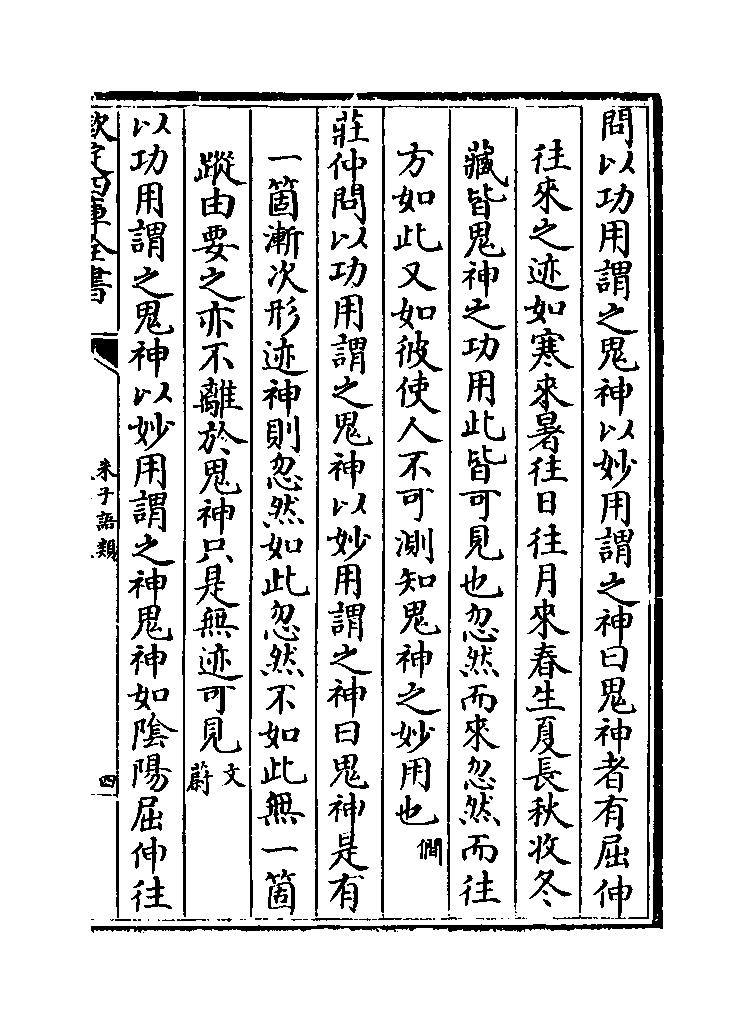 問以功用謂之鬼神以妙用謂之神曰鬼神者有屈伸
往來之迹如寒來暑往日往月來春生夏長秋收冬
藏皆鬼神之功用此皆可見也忽然而來忽然而往
方如此又如彼使人不可測知鬼神之妙用也僩
莊仲問以功用謂之鬼神以妙用謂之神曰鬼神是有
一箇漸次形迹神則忽然如此忽然不如此無一箇
蹤由要之亦不離於鬼神只是無迹可見文蔚
以功用謂之鬼神以妙用謂之神鬼神如陰陽屈伸往
欽定四庫全書
朱子語類
四